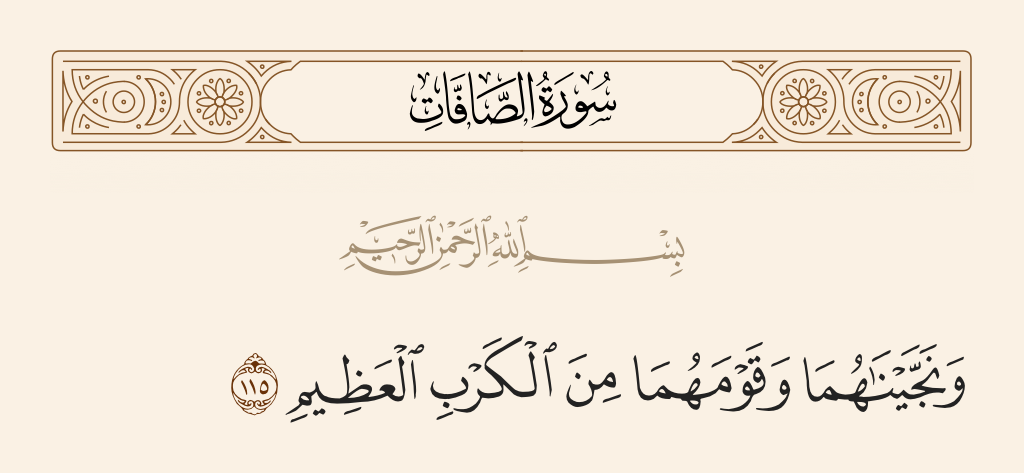 سُورَةُ الصَّافَّاتِ
بِسْمِ ٱللَّهِ ٱلرَّحْمَٰنِ ٱلرَّحِيمِ
وَنَجَّيْنَٰهُمَا وَقَوْمَهُمَا مِنَ ٱلْكَرْبِ ٱلْعَظِيمِ ١١٥